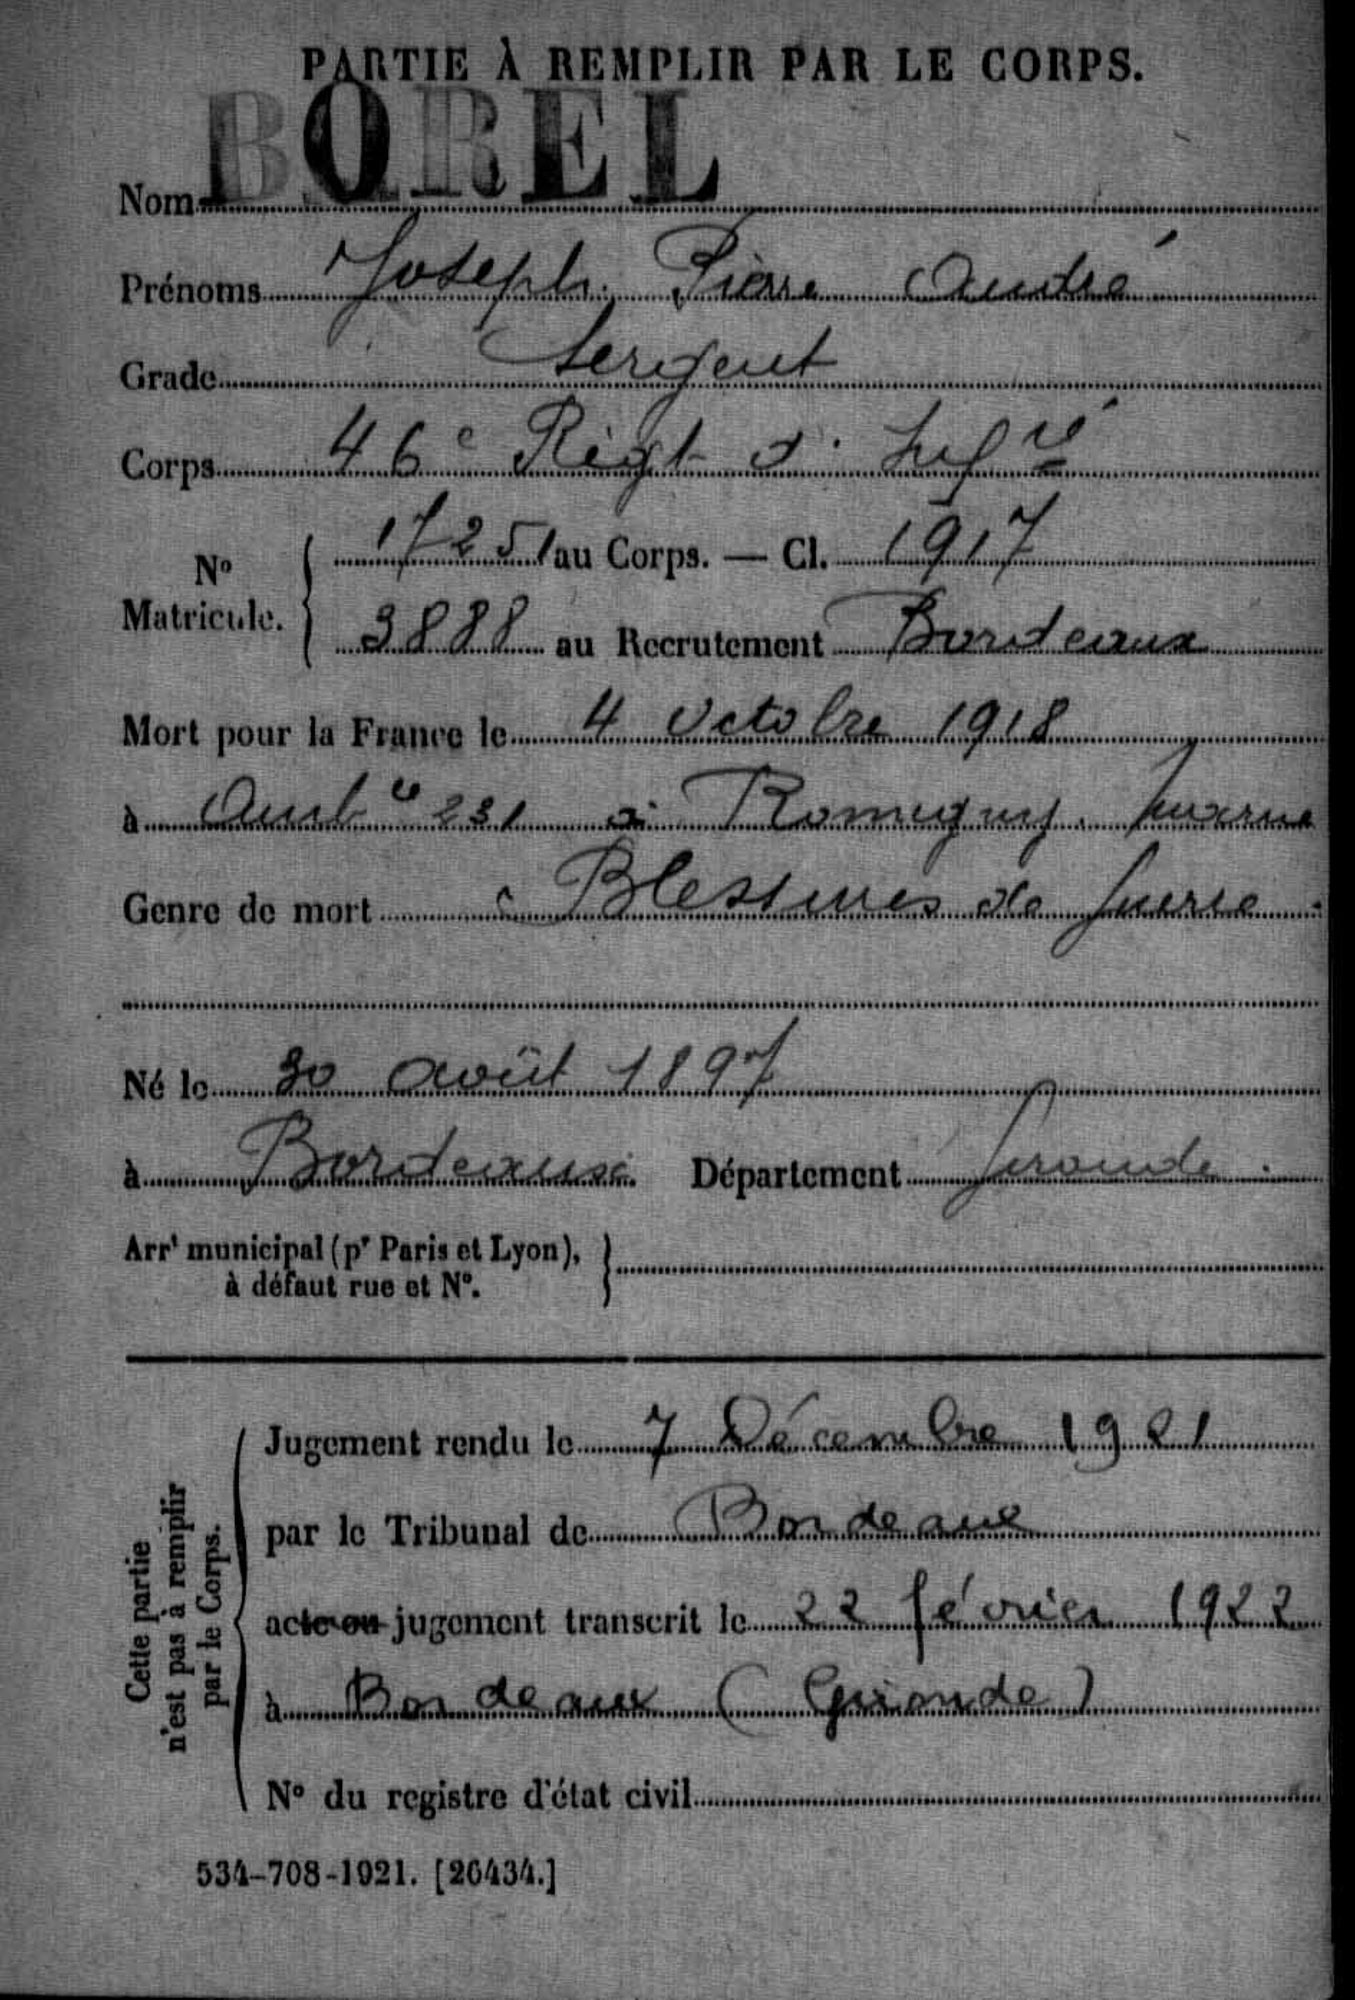 PARTIE À REMPLIR PAR LE CORPS.
Nom BOREL
Prénoms Joseph Pierre André
Grade Sergent
Corps 46e Régt d' Infie
No Matricule. 17251 au Corps. — Cl. 1917
3888 au Recrutement Bordeaux
Mort pour la France le 4 Octobre 1918
à Ambce 231 à Romigny Marne
Genre de mort Blessures de guerre
Né le 30 Août 1897
à Bordeaux Département Gironde.
Arrt municipal (pr Paris et Lyon),
à défaut rue et No.
Cette partie
n'est pas à remplir
par le Corps.
Jugement rendu le 7 Décembre 1921
par le Tribunal de Bordeaux
acte ou jugement transcrit le 22 février 1922
à Bordeaux (Gironde)
No du registre d'état civil
534-708-1921. [26434.]